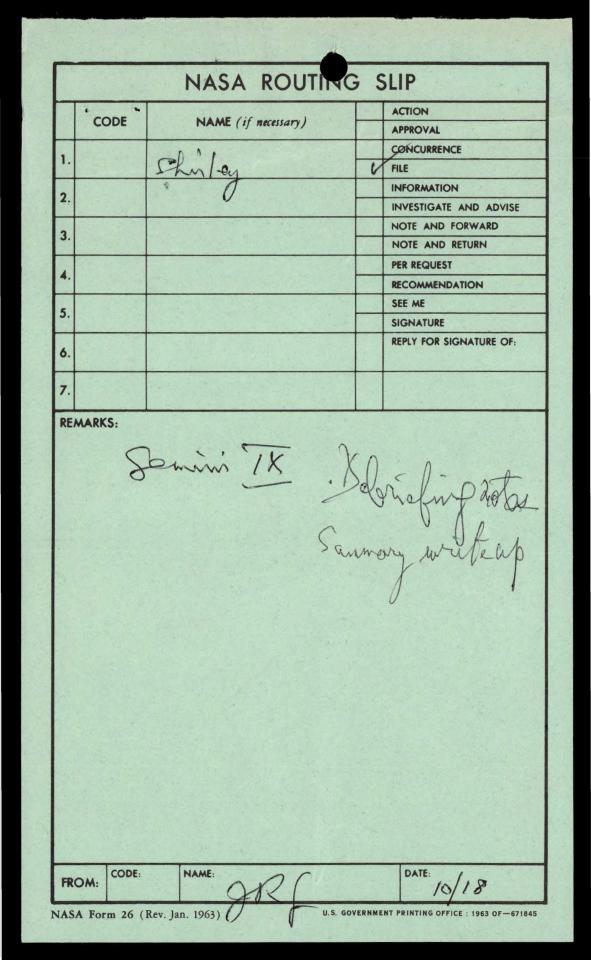 NASA ROUTING SLIP
CODE NAME (if necessary)
ACTION
APPROVAL
CONCURRENCE
1. Shirley ✓ FILE
INFORMATION
2.
INVESTIGATE AND ADVISE
NOTE AND FORWARD
3.
NOTE AND RETURN
PER REQUEST
4.
RECOMMENDATION
SEE ME
5.
SIGNATURE
REPLY FOR SIGNATURE OF:
6.
7.
REMARKS:
Gemini IX Debriefing notes
Summary writeup
FROM: CODE: NAME: DATE:
10/18
NASA Form 26 (Rev. Jan. 1963) U.S. GOVERNMENT PRINTING OFFICE : 1963 OF—671845